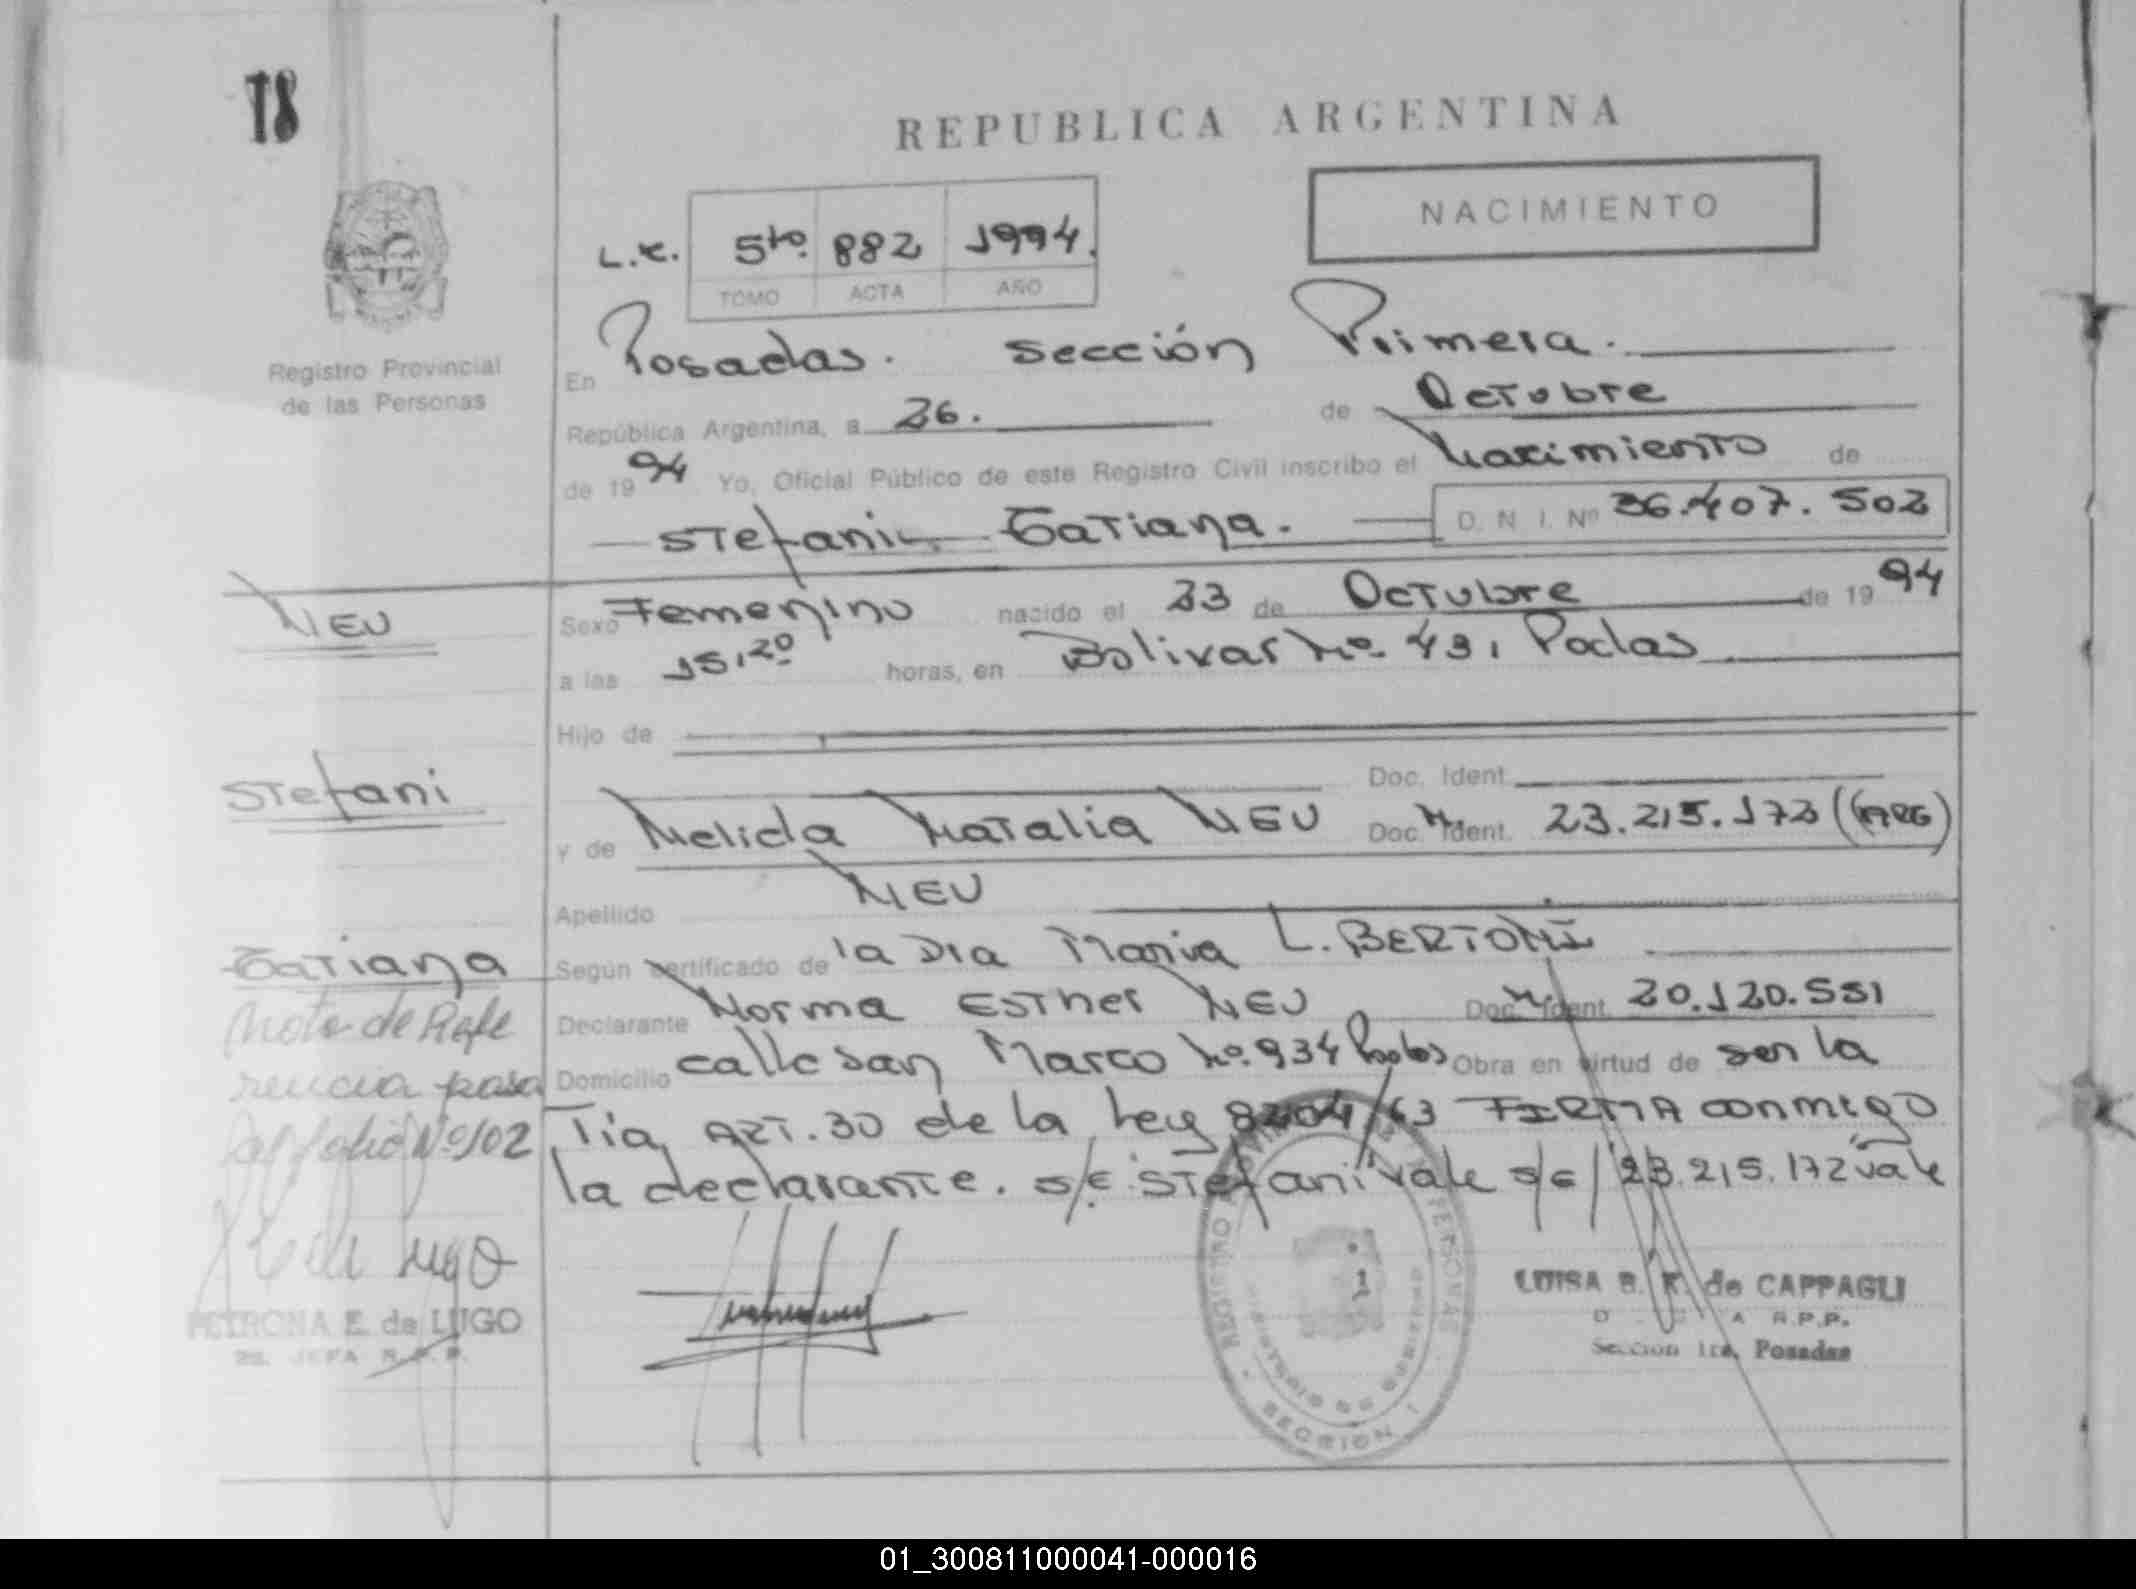 18
REPUBLICA ARGENTINA
NACIMIENTO
L.E. 5to. 882 1994.
TOMO ACTA AÑO
Registro Provincial
de las Personas
En Posadas. Sección Primera.
República Argentina, a 26. de Octubre
de 1994 Yo, Oficial Público de este Registro Civil inscribo el Nacimiento de
Stefani Tatiana. D. N. I. Nº 36.407.502
NEU
Sexo Femenino nacido el 23 de Octubre de 1994
a las 15,20 horas, en Bolivar No. 431 Podas
Hijo de
Stefani
Doc. Ident.
y de Nelida Natalia NEU Doc. Ident. 23.215.172 (ARG)
Apellido NEU
Tatiana
Según certificado de la Dra Maria L. BERTONI
Declarante Norma Esther NEU Doc. Ident. 20.120.551
Domicilio calle San Marco No. 934 Obra en virtud de ser la
Tia ART. 30 de la Ley 8204/63 FIRMA conmigo
la declarante. s/E. Stefani vale s/E/ 23.215.172 vale
Nota de Refe
rencia pasa
al folio Nº 102
PETRONA E. de LUGO
JEFA R.P.P.
REGISTRO PROVINCIAL DE LAS PERSONAS
MINISTERIO DE GOBIERNO
1
SECCION 1
LUISA B. K. de CAPPAGLI
R.P.P.
Sección 1ra. Posadas
01_300811000041-000016